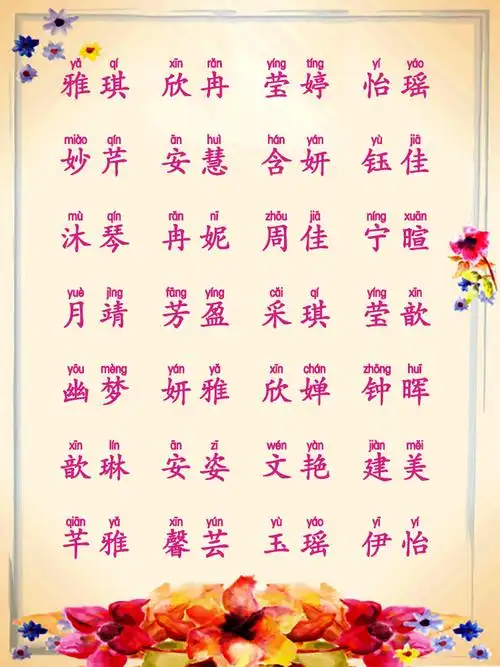 yǎ qí xīn rǎn yíng tíng yí yáo
雅琪 欣冉 莹婷 怡瑶
miào qín ān huì hán yán yù jiā
妙芹 安慧 含妍 钰佳
mù qín rǎn nī zhōu jiā níng xuān
沐琴 冉妮 周佳 宁暄
yuè jìng fāng yíng cǎi qí yíng xīn
月靖 芳盈 采琪 莹歆
yōu mèng yán yǎ xīn chán zhōng huī
幽梦 妍雅 欣婵 钟晖
xīn lín ān zī wén yàn jiàn měi
歆琳 安姿 文艳 建美
qiān yǎ xīn yún yù yáo yī yí
芊雅 馨芸 玉瑶 伊怡